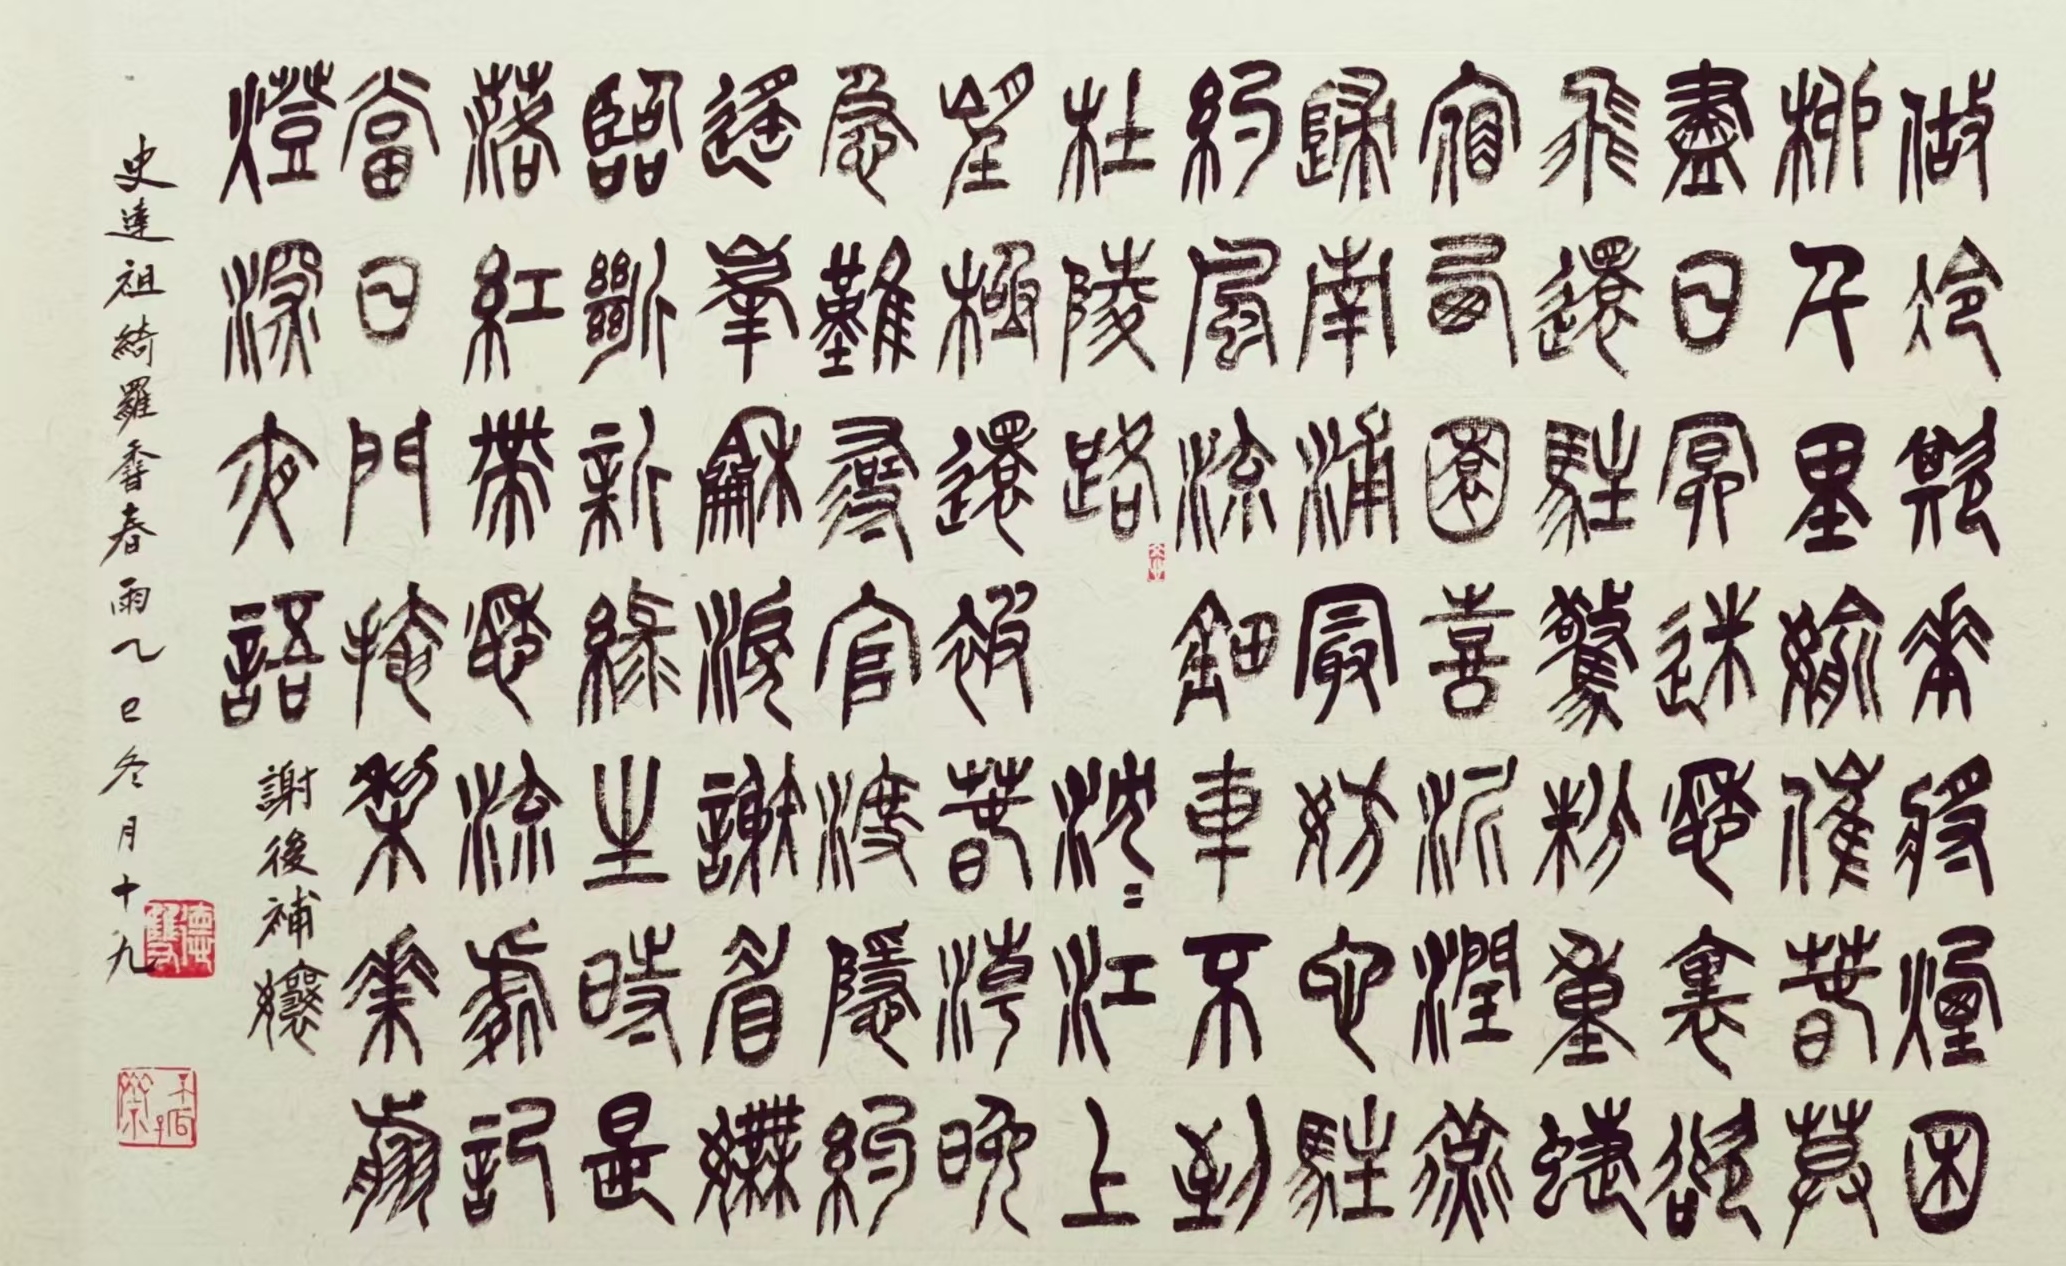 做冷欺花將煙困
柳千里媮催春暮
盡日冥迷愁裏欲
飛還駐驚粉重蜨
宿西園喜泥潤燕
歸南浦冣妨它駐
約風流鈿車不到
杜陵路
沈〻江上
望極還被春淖晚
急難尋官渡隱約
遙峯龢淚謝眉嫵
臨斷新緑生時是
落紅帶愁流處記
當日門掩棃華翦
燈深夜語
謝後補孃
史達祖綺羅香春雨乙巳冬月十九